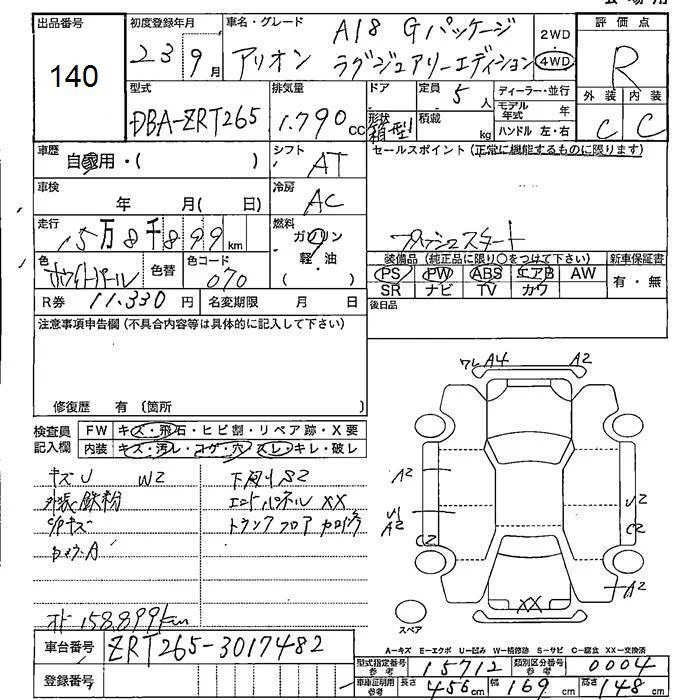 出品番号
140
初度登録年月
23 9月
車名・グレード
A18 Gパッケージ
アリオン ラグジュアリーエディション
2WD
4WD
評価点
R
外装 内装
C C
型式
DBA-ZRT265
排気量
1.790cc
ドア
形状
箱型
定員 5人
積載 kg
ディーラー・並行
モデル年式 年
ハンドル 左・右
車歴
自家用・( )
シフト
AT
セールスポイント(正常に機能するものに限ります)
プッシュスタート
車検
年 月( 日)
冷房
AC
走行
15万8千899km
燃料
ガソリン
軽・油
( )
色
ホワイトパール
色替
色コード
070
装備品(純正品に限り○をつけて下さい)
PS PW ABS エアB AW
SR ナビ TV カワ
新車保証書
有・無
R券 11.330円
名変期限 月 日
後日品
注意事項申告欄(不具合内容等は具体的に記入して下さい)
修復歴 有(箇所 )
検査員記入欄
FW キズ・飛石・ヒビ割・リペア跡・X要
内装 キズ・汚レ・コゲ・穴・スレ・キレ・破レ
キズU W2
下廻りS2
外装鉄粉
エンドパネル XX
キズ
トランクフロア
オド 158,899km
ワレ A4 A2
A2
U1
A2
C2
U2
C2
A2
XX
スペア
A-キズ E-エクボ U-凹み W-補修跡 S-サビ C-腐食 XX-交換済
車台番号 ZRT265-3017482
登録番号
型式指定番号 参考 15712
類別区分番号 参考 0004
車車証明用 参考 長さ 456cm 幅 169cm 高さ 148cm